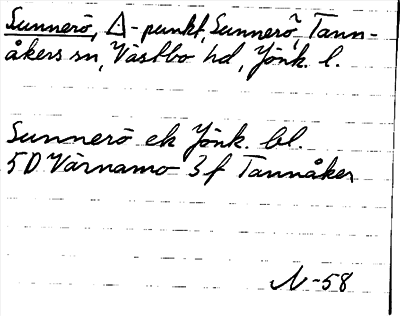 Sunnerö, △-punkt, Sunnerö, Tann-
åkers sn, Västbo hd, Jönk. l.
Sunnerö ek Jönk. bl.
5D Värnamo 3f Tannåker
N-58